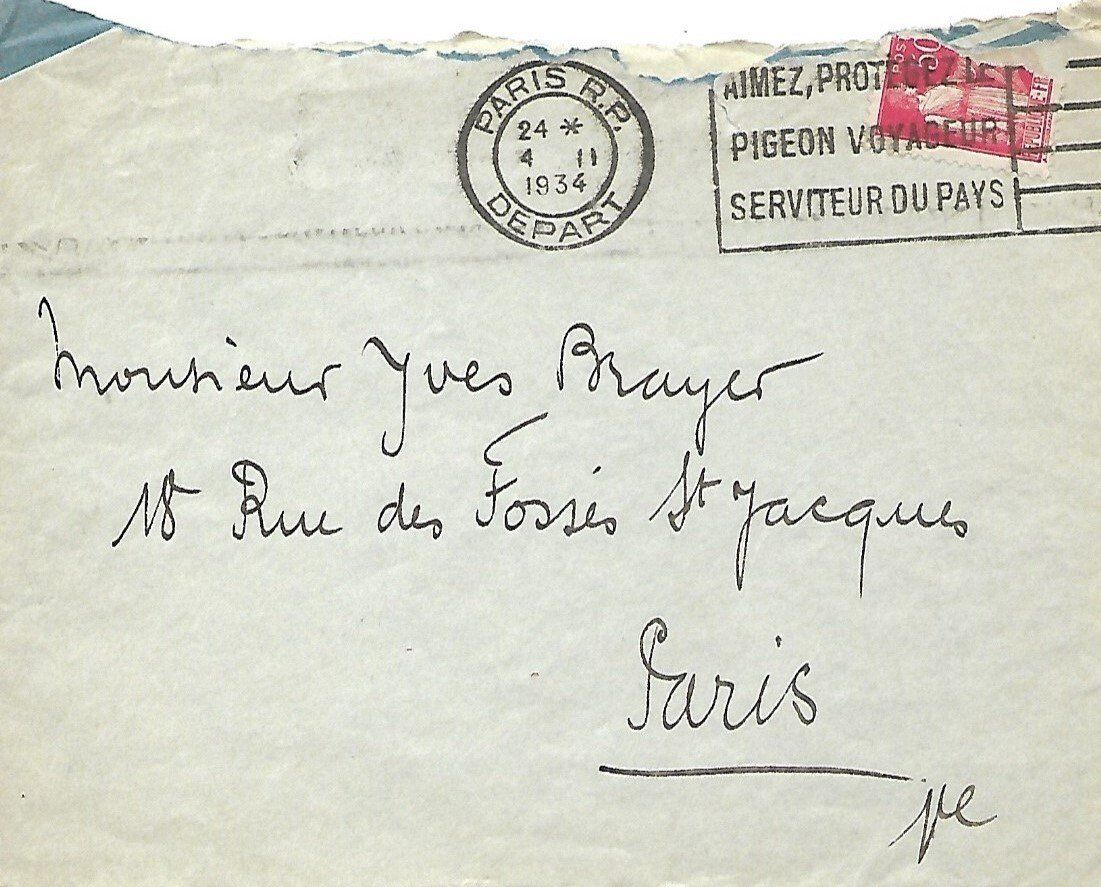 PARIS R.P.
24 *
4 II
1934
DEPART
AIMEZ, PROTEGEZ LE
PIGEON VOYAGEUR
SERVITEUR DU PAYS
POS
50
REPUBLIQUE FR
Monsieur Yves Brayer
18 Rue des Fossés St Jacques
Paris
Ve